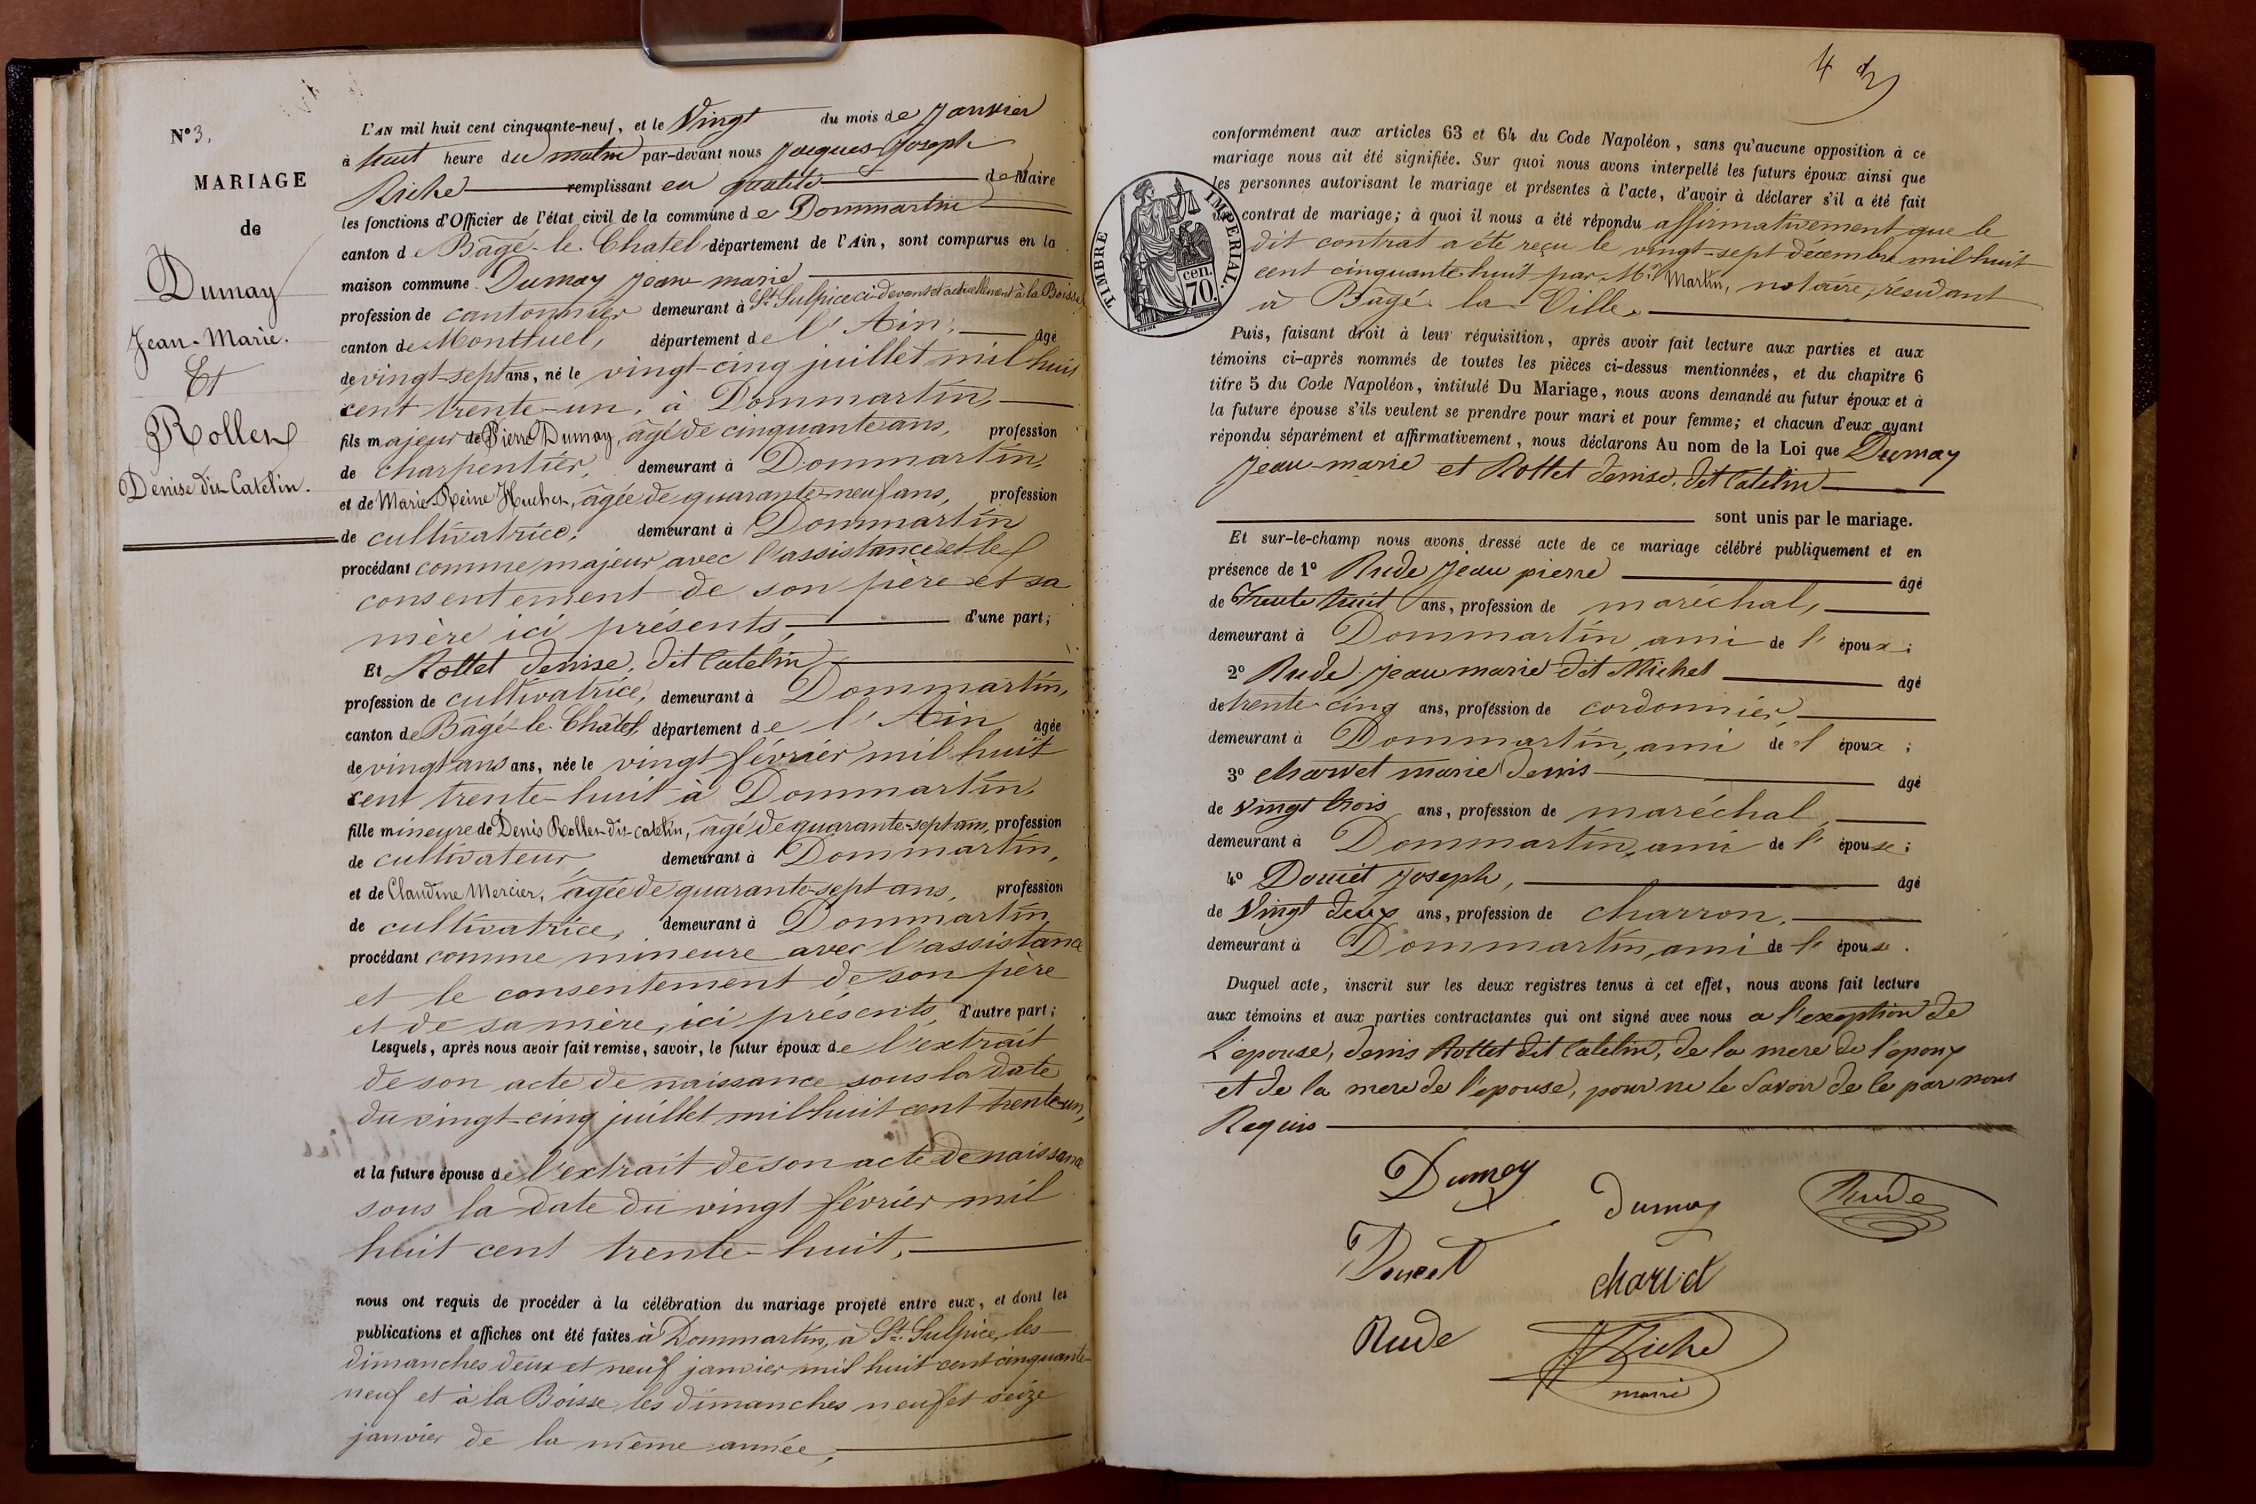 N° 3.
MARIAGE
de
Dumay
Jean-Marie.
Et
Rollet
Denise dit Catelin.
L'AN mil huit cent cinquante-neuf, et le Vingt du mois de Janvier
à huit heure du matin par-devant nous Jacques-Joseph
Riche remplissant en qualité de Maire
les fonctions d'Officier de l'état civil de la commune de Dommartin
canton de Bâgé-le-Chatel département de l'Ain, sont comparus en la
maison commune Dumay Jean-marie
profession de cantonnier demeurant à St Sulpice ci-devant et actuellement à la Boisse
canton de Montluel, département de l'Ain, âgé
de vingt-sept ans, né le vingt-cinq juillet mil huit
cent trente-un, à Dommartin,
fils majeur de Pierre Dumay, âgé de cinquante ans, profession
de charpentier, demeurant à Dommartin,
et de Marie-Reine Huchet, âgée de quarante-neuf ans, profession
de cultivatrice, demeurant à Dommartin
procédant comme majeur avec l'assistance et le
consentement de son père et sa
mère ici présents, d'une part;
Et Rollet denise, dit Catelin
profession de cultivatrice, demeurant à Dommartin,
canton de Bâgé-le-Châtel, département de l'Ain âgée
de vingt ans ans, née le vingt février mil huit
cent trente-huit à Dommartin,
fille mineure de Denis Rollet dit Catelin, âgé de quarante-sept ans, profession
de cultivateur, demeurant à Dommartin,
et de Claudine Mercier, âgée de quarante-sept ans, profession
de cultivatrice, demeurant à Dommartin,
procédant comme mineure avec l'assistance
et le consentement de son père
et de sa mère, ici présents, d'autre part;
Lesquels, après nous avoir fait remise, savoir, le futur époux de l'extrait
de son acte de naissance sous la date
du vingt-cinq juillet mil huit cent trente-un,
et la future épouse de l'extrait de son acte de naissance
sous la date du vingt février mil
huit cent trente-huit,
nous ont requis de procéder à la célébration du mariage projeté entre eux, et dont les
publications et affiches ont été faites à Dommartin, à St Sulpice, les
dimanches deux et neuf janvier mil huit cent cinquante-
neuf et à la Boisse les dimanches neuf et seize
janvier de la même année,
4
TIMBRE IMPERIAL.
70 cen.
conformément aux articles 63 et 64 du Code Napoléon, sans qu'aucune opposition à ce
mariage nous ait été signifiée. Sur quoi nous avons interpellé les futurs époux ainsi que
les personnes autorisant le mariage et présentes à l'acte, d'avoir à déclarer s'il a été fait
un contrat de mariage; à quoi il nous a été répondu affirmativement que le
dit contrat a été reçu le vingt-sept décembre mil huit
cent cinquante-huit par Me Martin, notaire, résidant
à Bâgé-la-Ville.
Puis, faisant droit à leur réquisition, après avoir fait lecture aux parties et aux
témoins ci-après nommés de toutes les pièces ci-dessus mentionnées, et du chapitre 6
titre 5 du Code Napoléon, intitulé Du Mariage, nous avons demandé au futur époux et à
la future épouse s'ils veulent se prendre pour mari et pour femme; et chacun d'eux ayant
répondu séparément et affirmativement, nous déclarons Au nom de la Loi que Dumay
Jean-marie et Rollet denise, dit Catelin
sont unis par le mariage.
Et sur-le-champ nous avons dressé acte de ce mariage célébré publiquement et en
présence de 1° Rude Jean pierre âgé
de trente huit ans, profession de maréchal,
demeurant à Dommartin, ami de l'époux;
2° Rude Jean marie dit Michel âgé
de trente-cinq ans, profession de cordonnier,
demeurant à Dommartin, ami de l'époux;
3° Charvet marie denis âgé
de vingt trois ans, profession de maréchal,
demeurant à Dommartin, ami de l'épouse;
4° Doucet Joseph, âgé
de Vingt deux ans, profession de charron,
demeurant à Dommartin, ami de l'épouse.
Duquel acte, inscrit sur les deux registres tenus à cet effet, nous avons fait lecture
aux témoins et aux parties contractantes qui ont signé avec nous a l'exception de
L'epouse, denis Rollet dit Catelin, de la mere de l'epoux
et de la mere de l'epouse, pour ne le savoir de ce par nous
Requis
Dumay
Dumay
Rude
Doucet
Charvet
Rude
Riche
maire